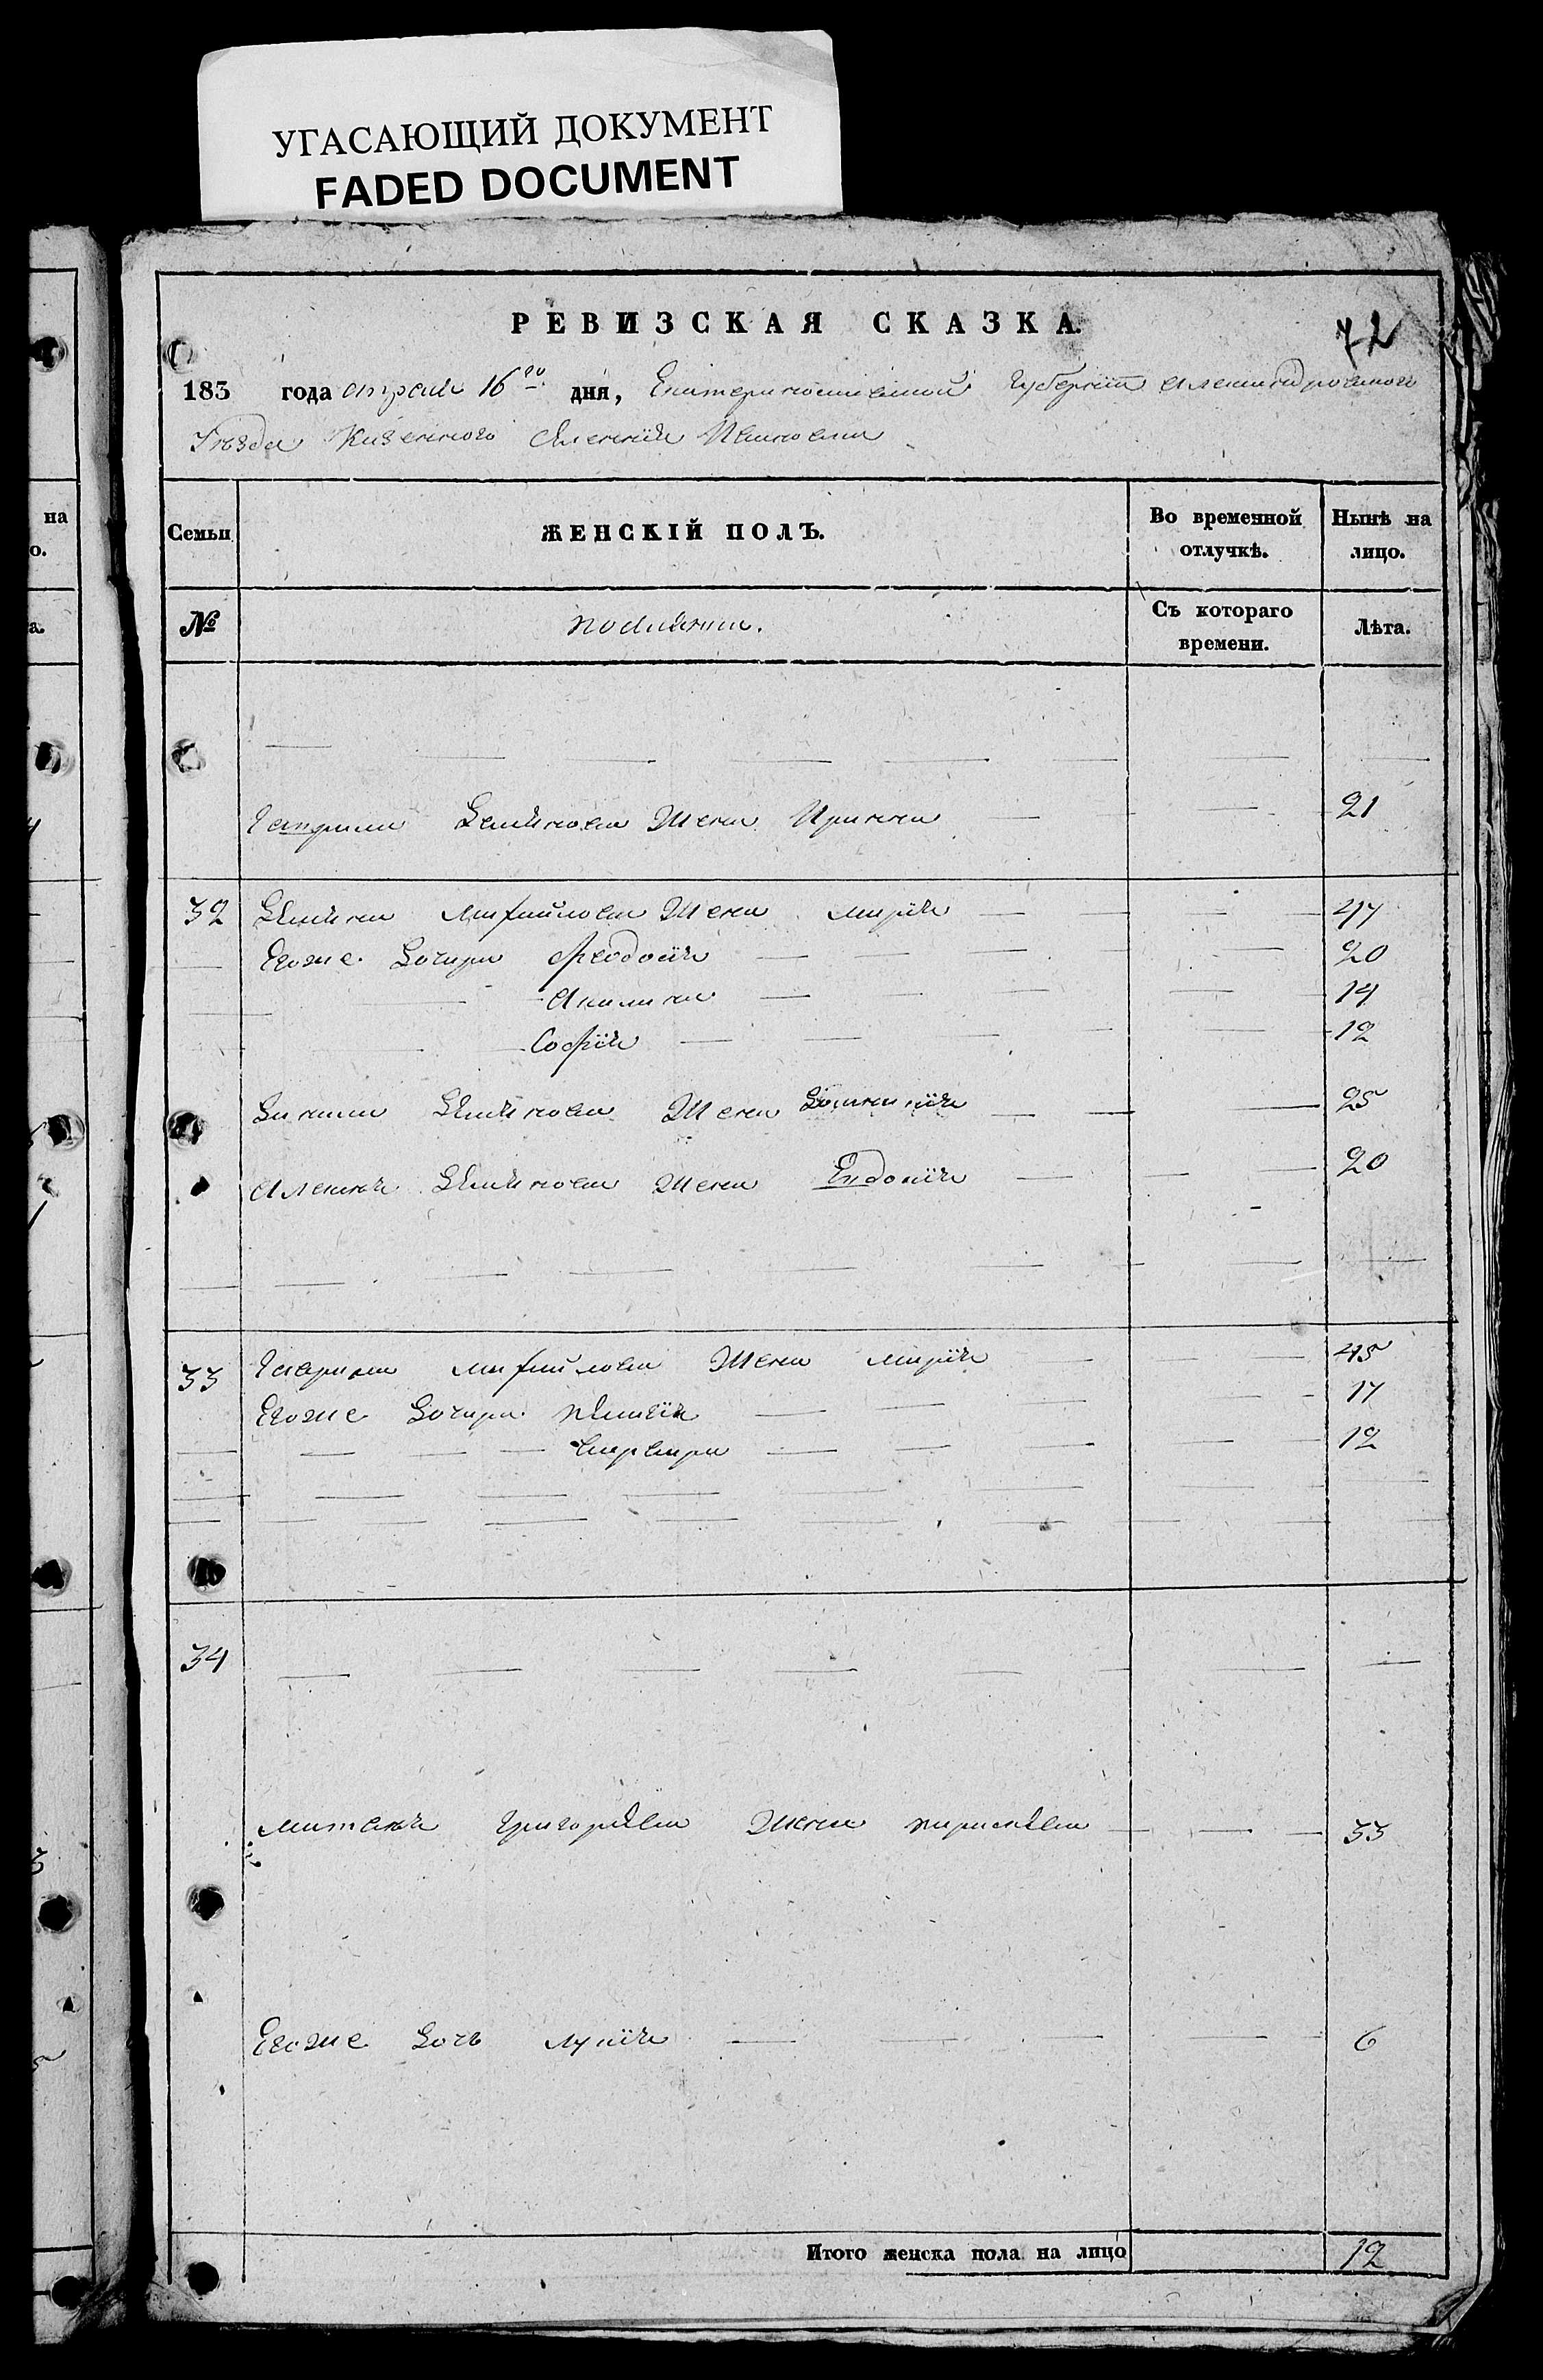 УГАСАЮЩИЙ ДОКУМЕНТ
FADED DOCUMENT
РЕВИЗСКАЯ СКАЗКА.
72
183 года апреля 16го дня, Екатеринославской Губернии Александровского
Уезда Казенного Селения
Семьи
ЖЕНСКІЙ ПОЛЪ.
Во временной отлучкѣ.
Нынѣ на лицо.
№
поселянки.
Съ котораго времени.
Лѣта.
Гаврила Демянова Жена Ирина 21
32 Демяна Михайлова Жена Марія 47
Егоже Дочери Феодосія 20
Акилина 14
Софія 12
Демянова Жена 25
Алексея Демянова Жена Евдокія 20
33 Гаврила Михайлова Жена Марія 45
Егоже Дочери 17
Варвара 12
34
Матвея Григорьева Жена 33
Егоже Дочь Лукія 6
Итого женска пола на лицо 12
на
о.
а.